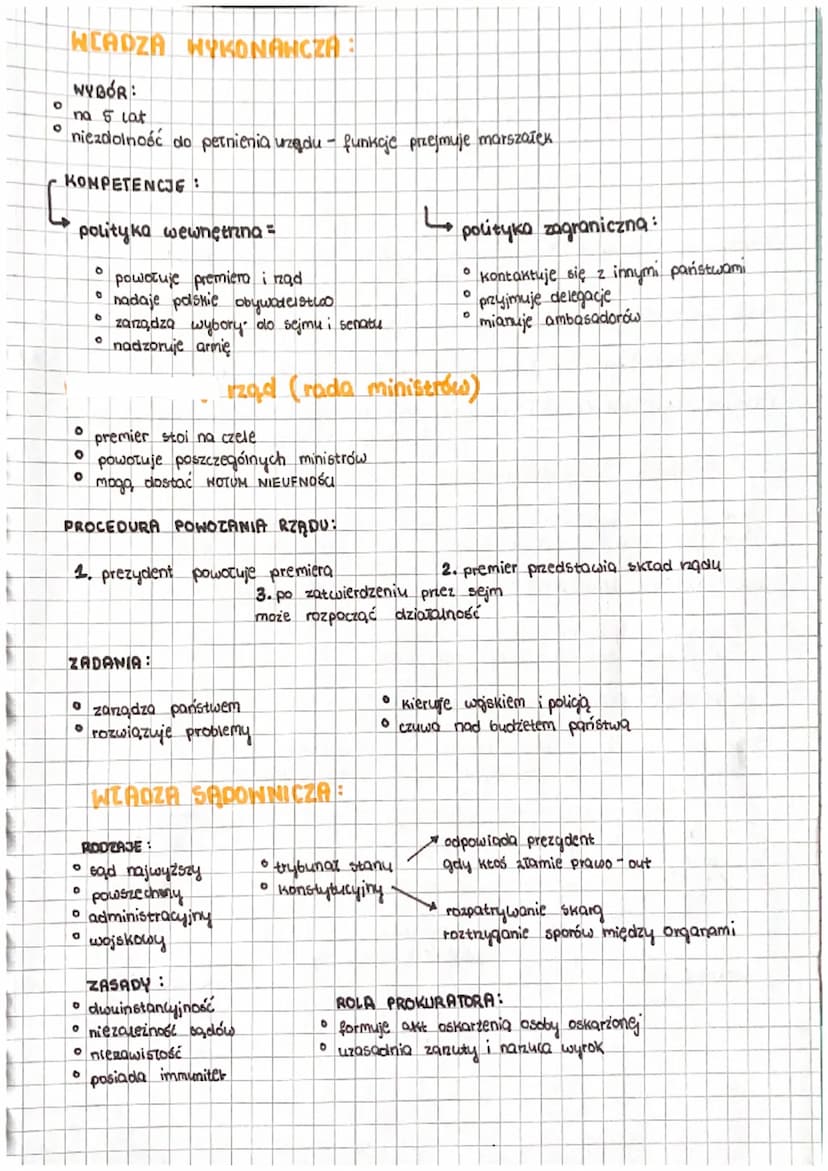 WŁADZA WYKONAWCZA:
WYBÓR:
° na 5 lat
° niezdolność do pełnienia urzędu - funkcje przejmuje marszałek
KOMPETENCJE:
polityka wewnętrzna:
° powołuje premiera i rząd
° nadaje polskie obywatelstwo
° zarządza wybory do sejmu i senatu
° nadzoruje armię
polityka zagraniczna:
° kontaktuje się z innymi państwami
° przyjmuje delegacje
° mianuje ambasadorów
rząd (rada ministrów)
° premier stoi na czele
° powołuje poszczególnych ministrów
° mogą dostać WOTUM NIEUFNOŚCI
PROCEDURA POWOŁANIA RZĄDU:
1. prezydent powołuje premiera
2. premier przedstawia skład rządu
3. po zatwierdzeniu przez sejm
może rozpocząć działalność
ZADANIA:
° zarządza państwem
° rozwiązuje problemy
° kieruje wojskiem i policją
° czuwa nad budżetem państwa
WŁADZA SĄDOWNICZA:
RODZAJE:
° sąd najwyższy
° powszechny
° administracyjny
° wojskowy
° trybunał stanu
° konstytucyjny
odpowiada prezydent
gdy ktoś złamie prawo - out
rozpatrywanie skarg
roztrzyganie sporów między organami
ZASADY:
° dwuinstancyjność
° niezależność sądów
° niezawistość
° posiada immunitet
ROLA PROKURATORA:
° formuje akt oskarżenia osoby oskarżonej
° uzasadnia zarzuty i narzuca wyrok